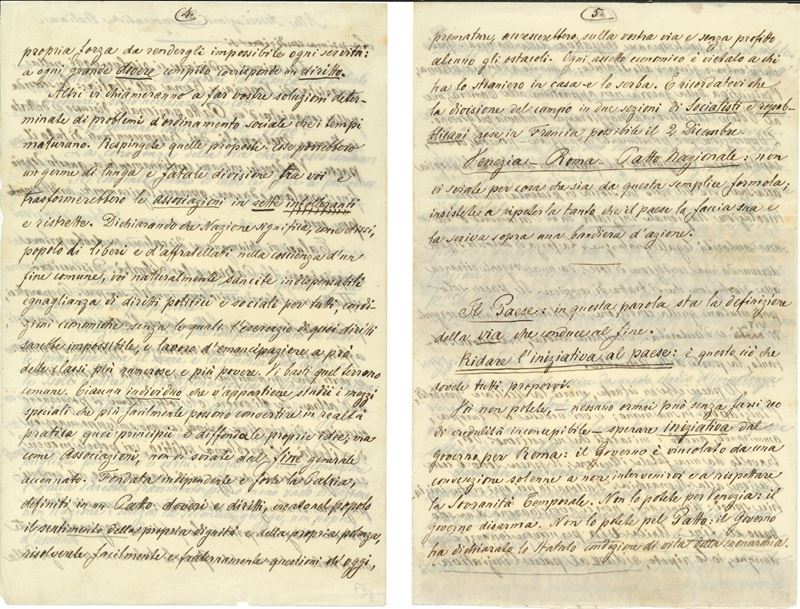 4.
propria forza da rendergli impossibile ogni servitù:
a ogni grande dovere compito corrisponde un diritto.
Altri vi chiameranno a far vostre soluzioni deter-
minate di problemi d'ordinamento sociale che i tempi
maturano. Respingete quelle proposte. Esse porrebbero
un germe di lunga e fatale divisione fra voi e
trasformerebbero le associazioni in sette intolleranti
e ristrette. Dichiarando che Nazione significa, come dissi,
popolo di liberi e d'affratellati nella coscienza d'un
fine comune, voi naturalmente sancite indispensabili
eguaglianza di diritti politici e sociali per tutti, condi-
zioni economiche senza le quali l'esercizio di quei diritti
sarebbe impossibile, e lavoro d'emancipazione a prò
delle classi più numerose e più povere. Vi basti quel terreno
comune. Ciascun individuo che v'appartiene studii i mezzi
speciali che più facilmente possono convertire in realtà
pratica quei principii e diffonda le proprie idee; ma
come Associazioni, non vi sviate dal fine generale
accennato. Fondata indipendente e forte la Patria,
definiti in un Patto doveri e diritti, creato nel popolo
il sentimento della propria dignità e della propria potenza,
risolverete facilmente e fraternamente questioni ch'oggi,
5.
premature, accrescerebbero sulla vostra via e senza profitto
alcuno gli ostacoli. Ogni assetto economico è vietato a chi
ha lo straniero in casa e lo serba. E ricordatevi che
la divisione del campo in due sezioni di Socialisti e repub-
blicani rese, in Francia, possibile il 2 Dicembre.
Venezia – Roma – Patto Nazionale: non
vi sviate per cosa che sia da questa semplice formola;
insistete a ripeterla tanto che il paese la faccia sua e
la scriva sopra una bandiera d'azione.
Il Paese: in questa parola sta la definizione
della via che conduce al fine.
Ridare l'iniziativa al paese: è questo ciò che
dovete tutti proporvi.
Voi non potete, – nessuno ormai può senza farsi reo
di credulità inconcepibile – sperare iniziativa dal
governo per Roma: il governo è vincolato da una
convenzione solenne a non intervenirvi e a rispettare
la Sovranità Temporale. Non lo potete per Venezia: il
governo disarma. Non lo potete pel Patto: il Governo
ha dichiarato lo Statuto condizione di vita della monarchia.